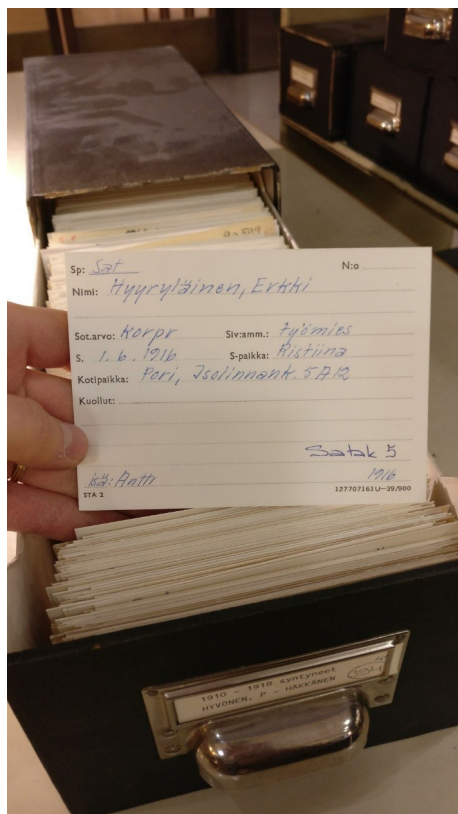 Sp: Sat N:o
Nimi: Hyyryläinen, Erkki
Sot.arvo: Korpr Siv:amm.: työmies
S. 1.6.1916 S-paikka: Ristiina
Kotipaikka: Pori, Isolinnank. 5A12
Kuollut:
Satak 5
isä: Antti 1916
STA 2 127707161U—39/900
1910 - 1918 syntyneet
HYVÖNEN, P - HÄKKÄNEN